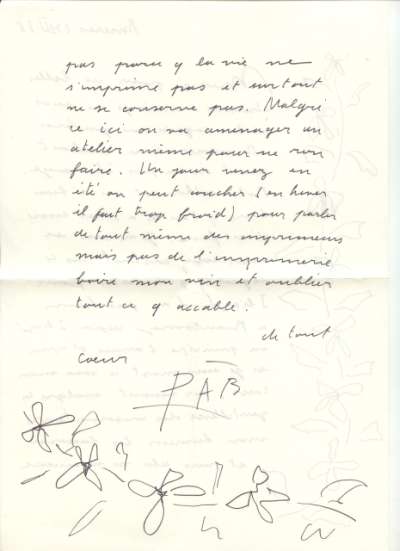 pas parce q la vie ne
s'imprime pas et surtout
ne se conserve pas. Malgré
ce ici on va aménager un
atelier même pour ne rien
faire. Un jour venez en
été on peut coucher (en hiver
il fait trop froid) pour parler
de tout même des imprimeurs
mais pas de l'imprimerie
boire mon vin et oublier
tout ce q accable.
de tout
coeur
PAB